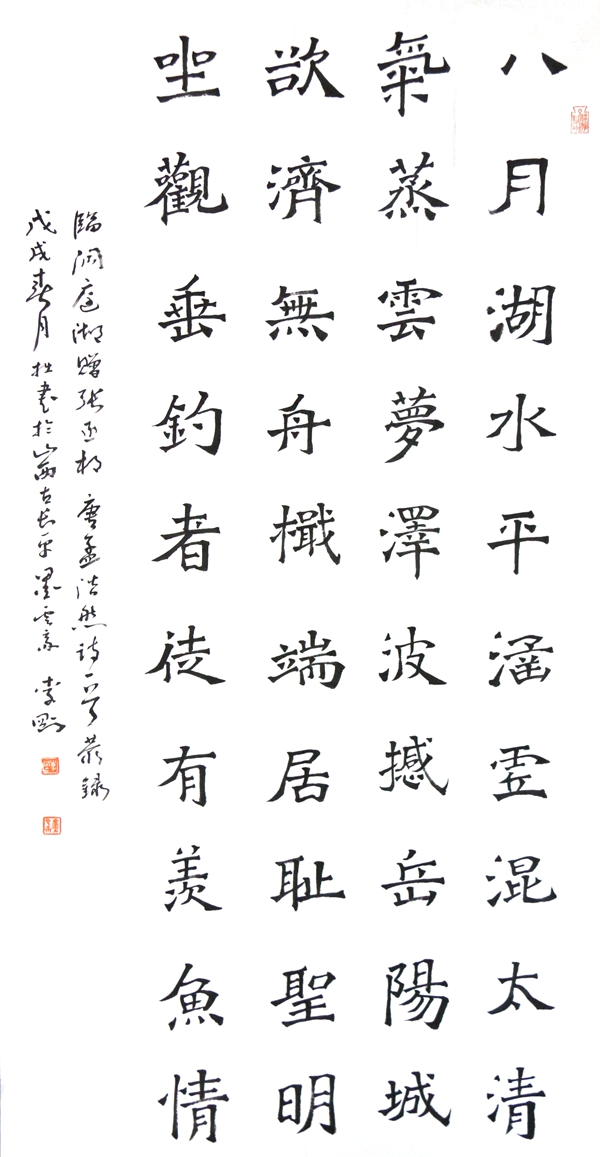 八月湖水平涵虛混太清
氣蒸雲夢澤波撼岳陽城
欲濟無舟檝端居耻聖明
坐觀垂釣者徒有羨魚情
臨洞庭湖贈張丞相 唐孟浩然詩一首 恭錄
戊戌春月拙書於